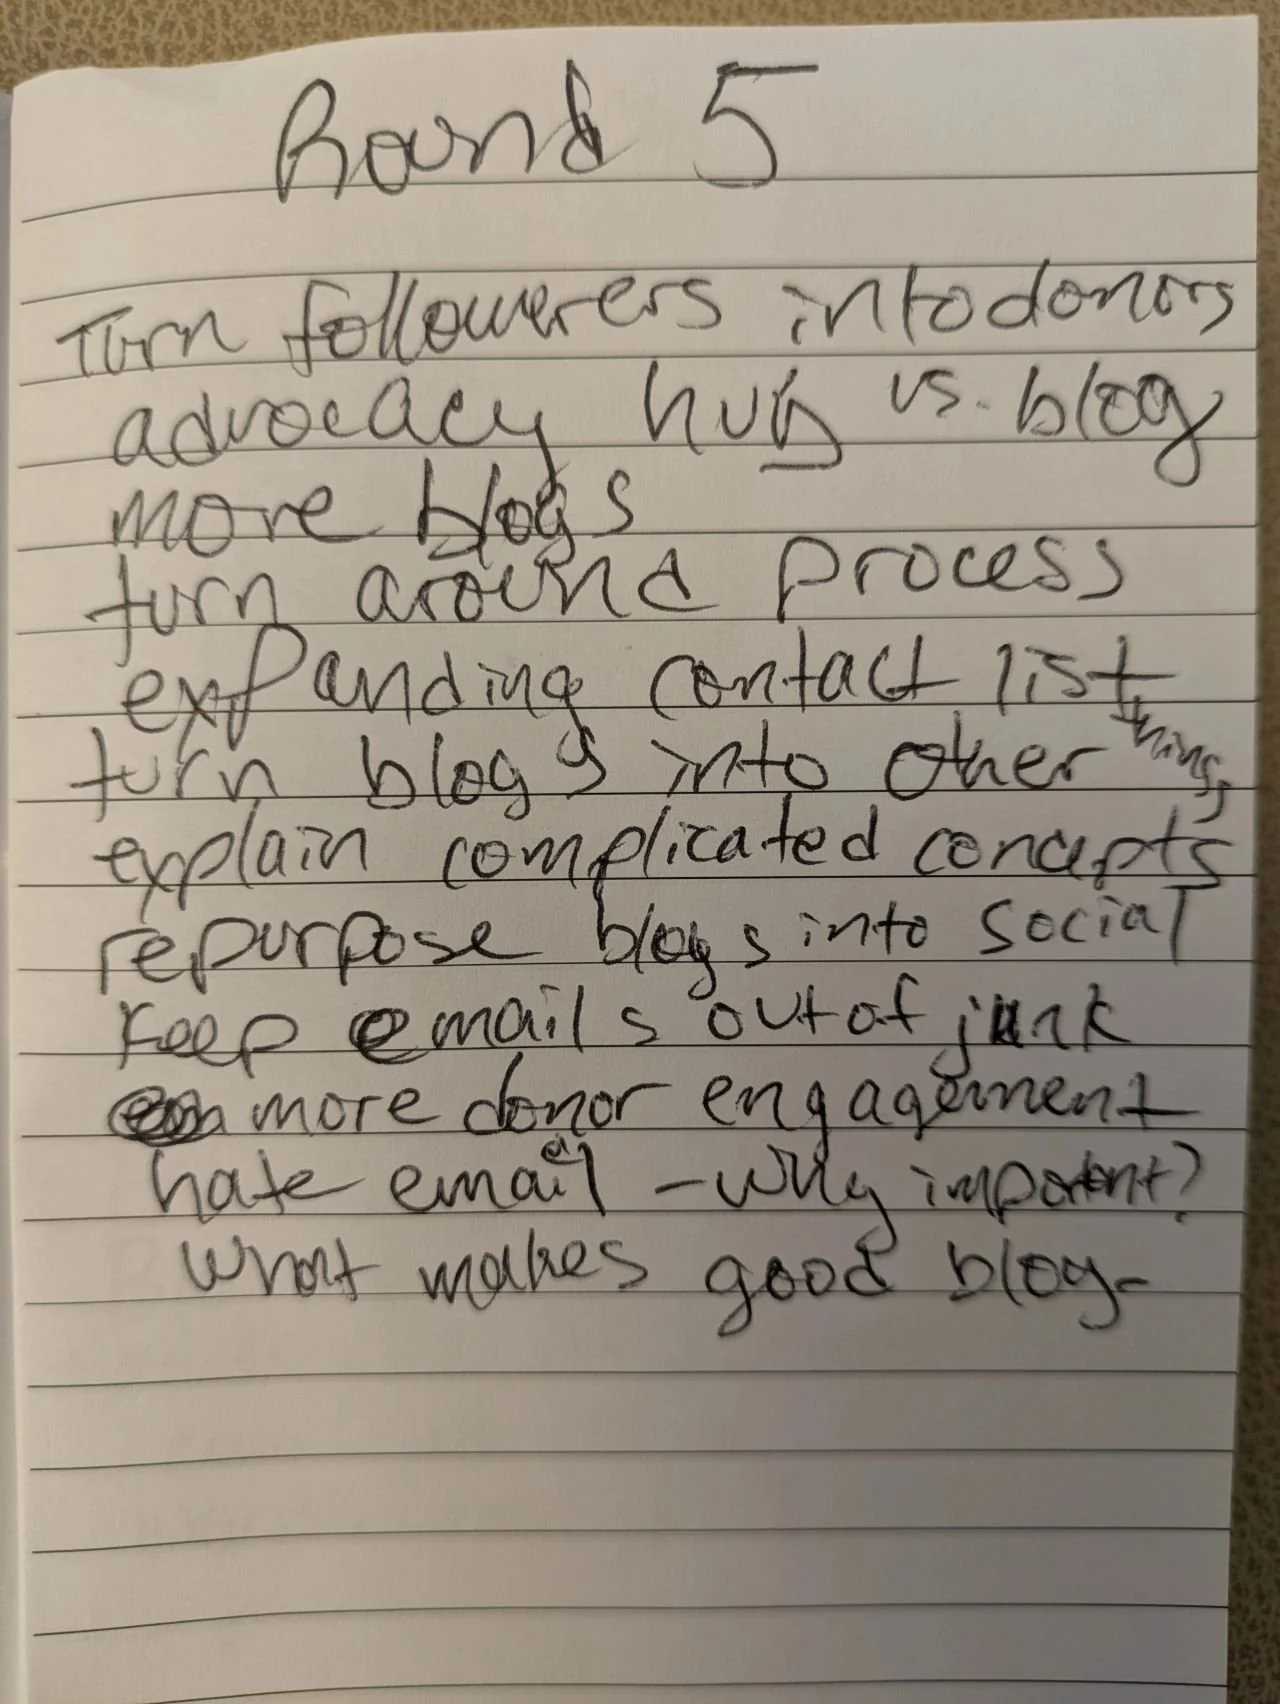 Round 5
Turn followerers into donors
advocacy hug vs. blog
more blogs
turn around process
expanding contact list
turn blogs into other things
explain complicated concepts
repurpose blogs into social
Keep emails out of junk
more donor engagement
hate email - why important?
What makes good blog-